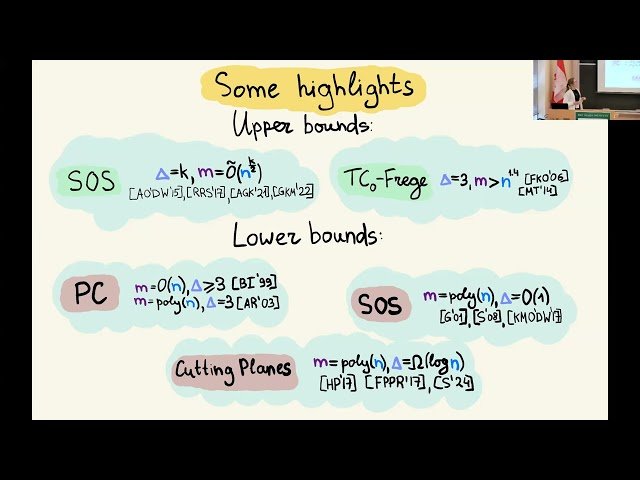 Some highlights
Upper bounds:
SOS
Δ=k, m=Õ(n^{k/2})
[AO'DW'15],[RRS'17],[AGK'21],[GKM'22]
TC₀-Frege
Δ=3, m>n^{1.4} [FKO'06]
[MT'14]
Lower bounds:
PC
m=O(n), Δ⩾3 [BI'99]
m=poly(n), Δ=3 [AR'03]
SOS
m=poly(n), Δ=O(1)
[G'01], [S'08], [KMO'DW'17]
Cutting Planes
m=poly(n), Δ=Ω(log n)
[HP'17] [FPPR'17], [S'24]